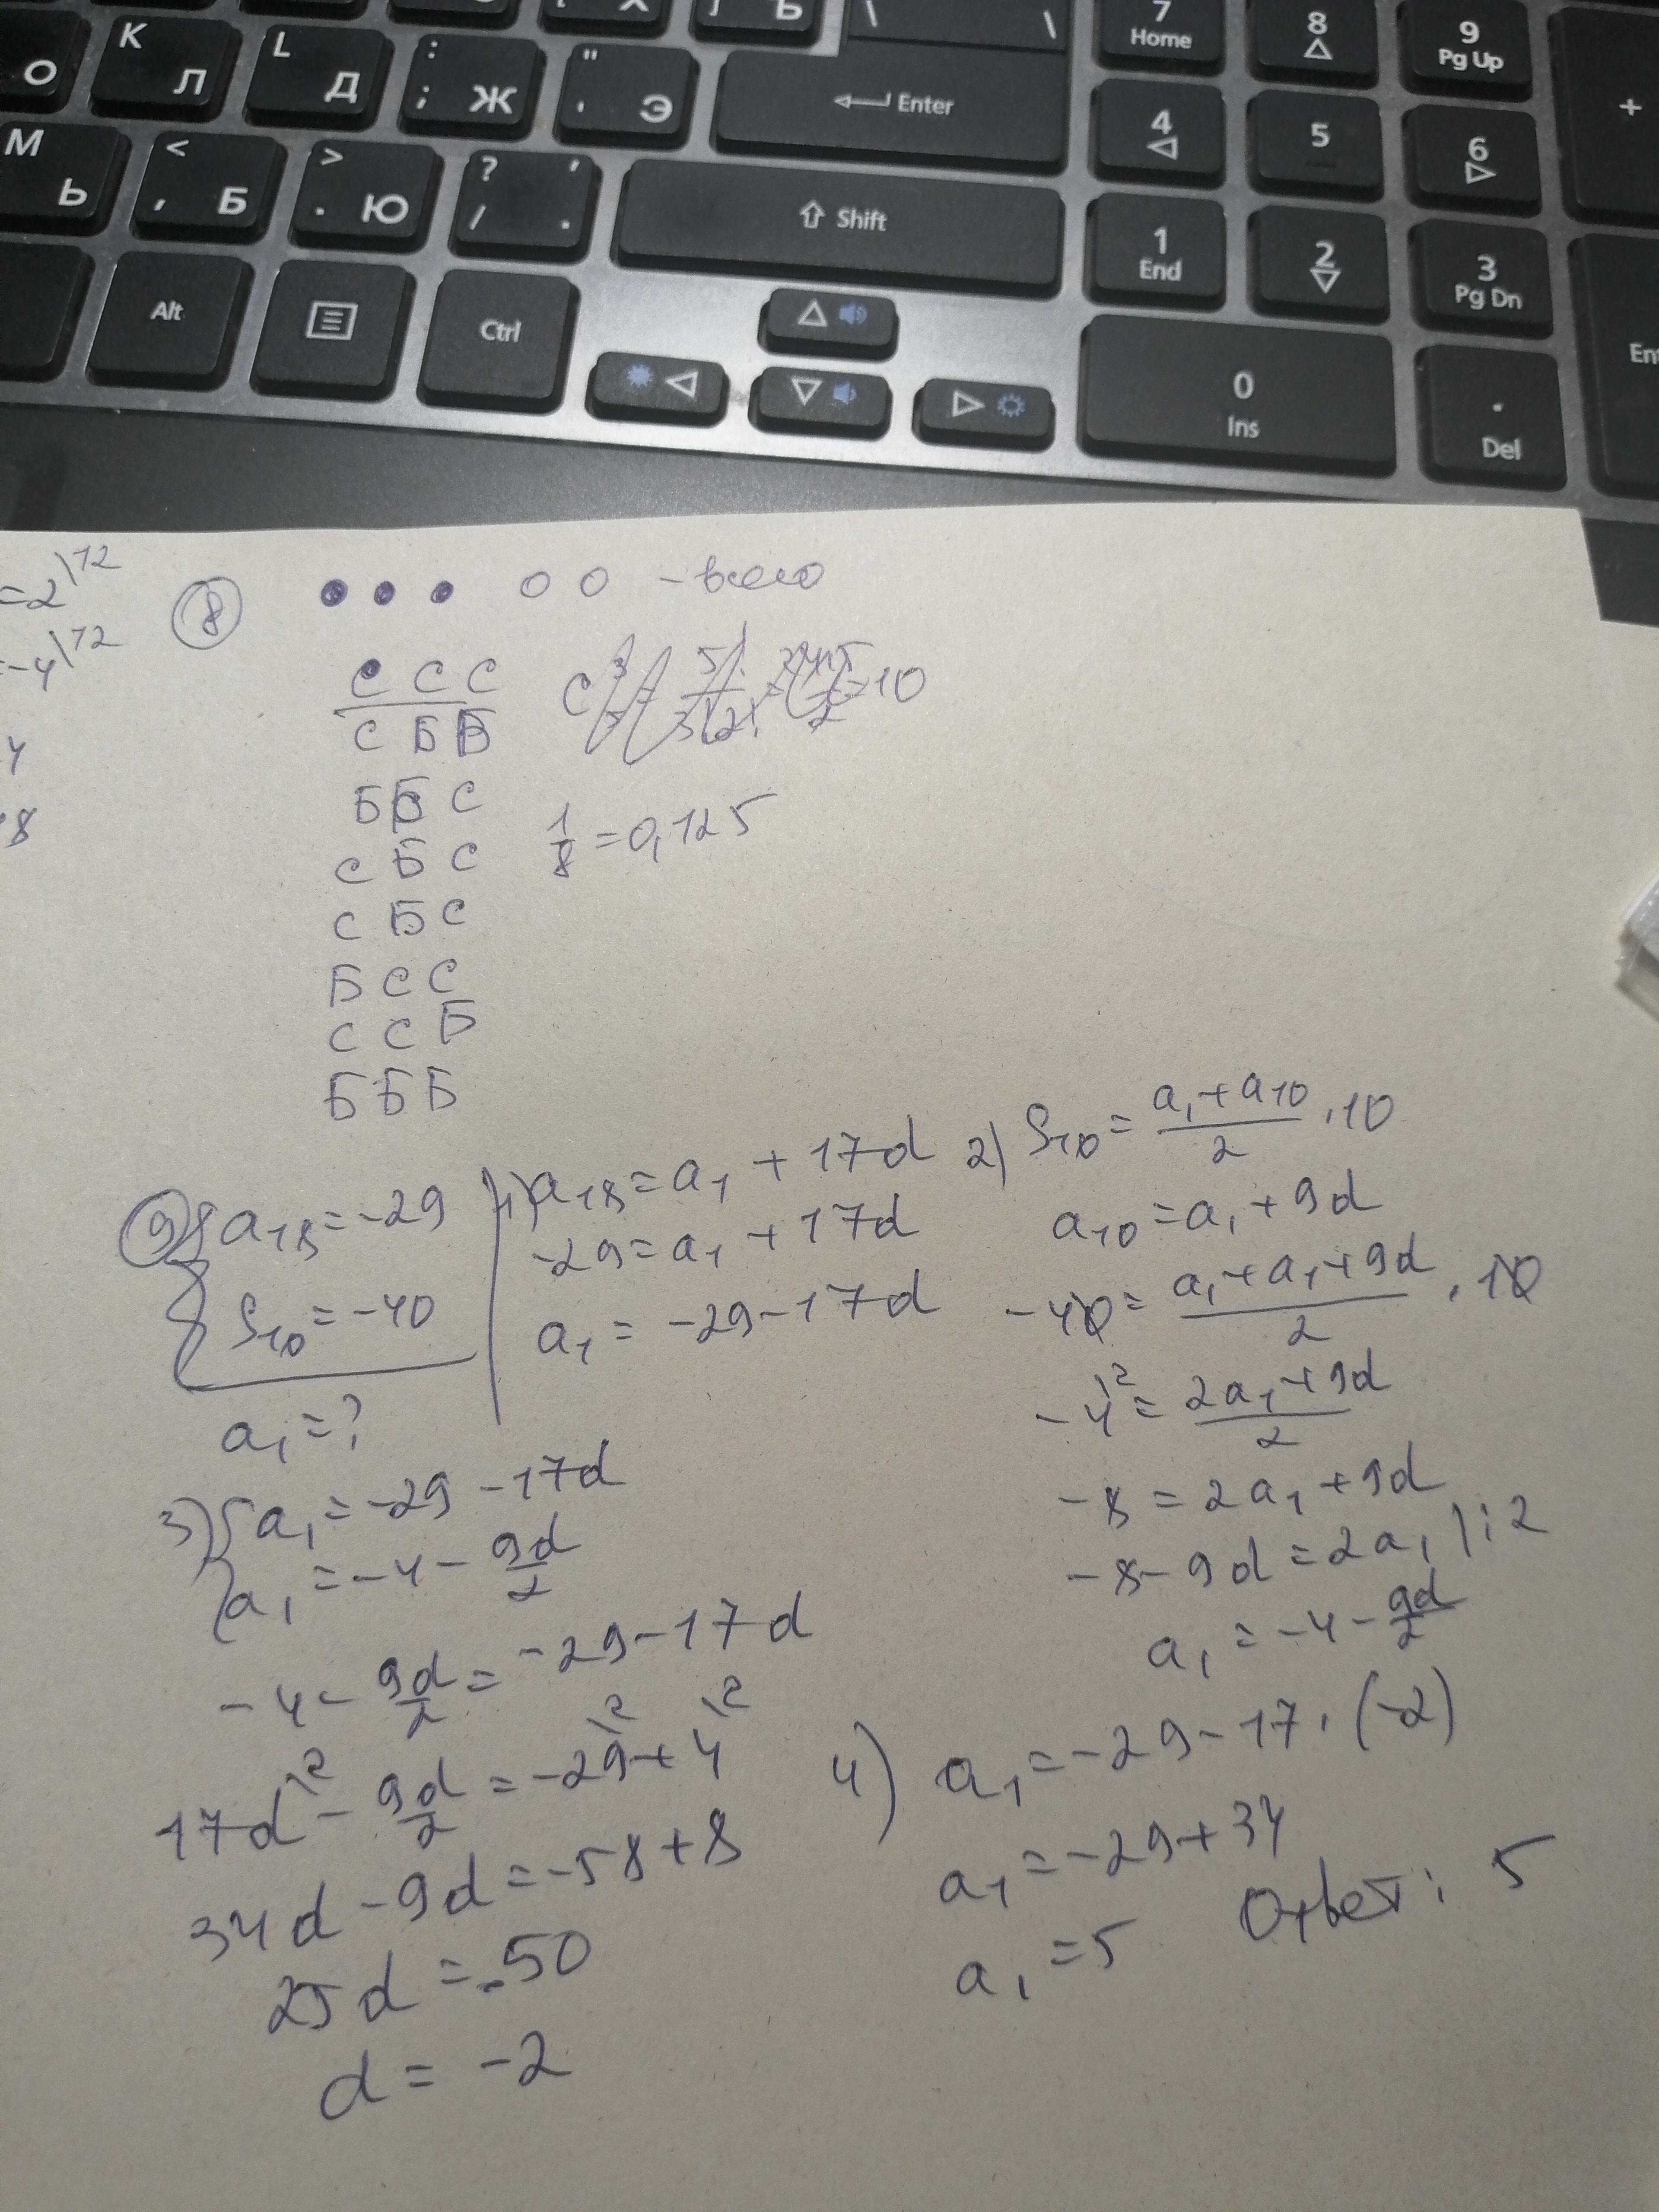 Х Ъ \ \ 7 Home 8 9 Pg Up +
О K Л L Д : ; Ж " ' Э Enter 4 5 6
М Ь < , Б > . Ю ? / , . Shift 1 End 2 3 Pg Dn
Alt Ctrl 0 Ins . Del En
=2\12
-4\12
4
8
8 - всего
С С С
10
С Б Б
Б Б С
1/8 = 0,125
С Б С
С Б С
Б С С
С С Б
Б Б Б
9 { a₁₈ = -29
S₁₀ = -40
a₁ = ?
1) a₁₈ = a₁ + 17d
-29 = a₁ + 17d
a₁ = -29 - 17d
2) S₁₀ = (a₁ + a₁₀)/2 · 10
a₁₀ = a₁ + 9d
-40 = (a₁ + a₁ + 9d)/2 · 10
-4\2 = (2a₁ + 9d)/2
-8 = 2a₁ + 9d
-8 - 9d = 2a₁ | : 2
a₁ = -4 - 9d/2
3) { a₁ = -29 - 17d
a₁ = -4 - 9d/2
-4 - 9d/2 = -29 - 17d
17d\2 - 9d/2 = -29\2 + 4\2
34d - 9d = -58 + 8
25d = -50
d = -2
4) a₁ = -29 - 17 · (-2)
a₁ = -29 + 34
a₁ = 5
Ответ: 5